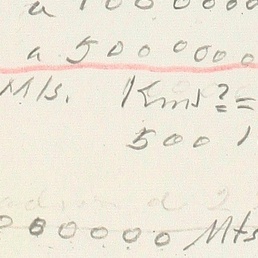 a 1000000
a 5000000
Mts. Kms² =
500 1
000000 Mts